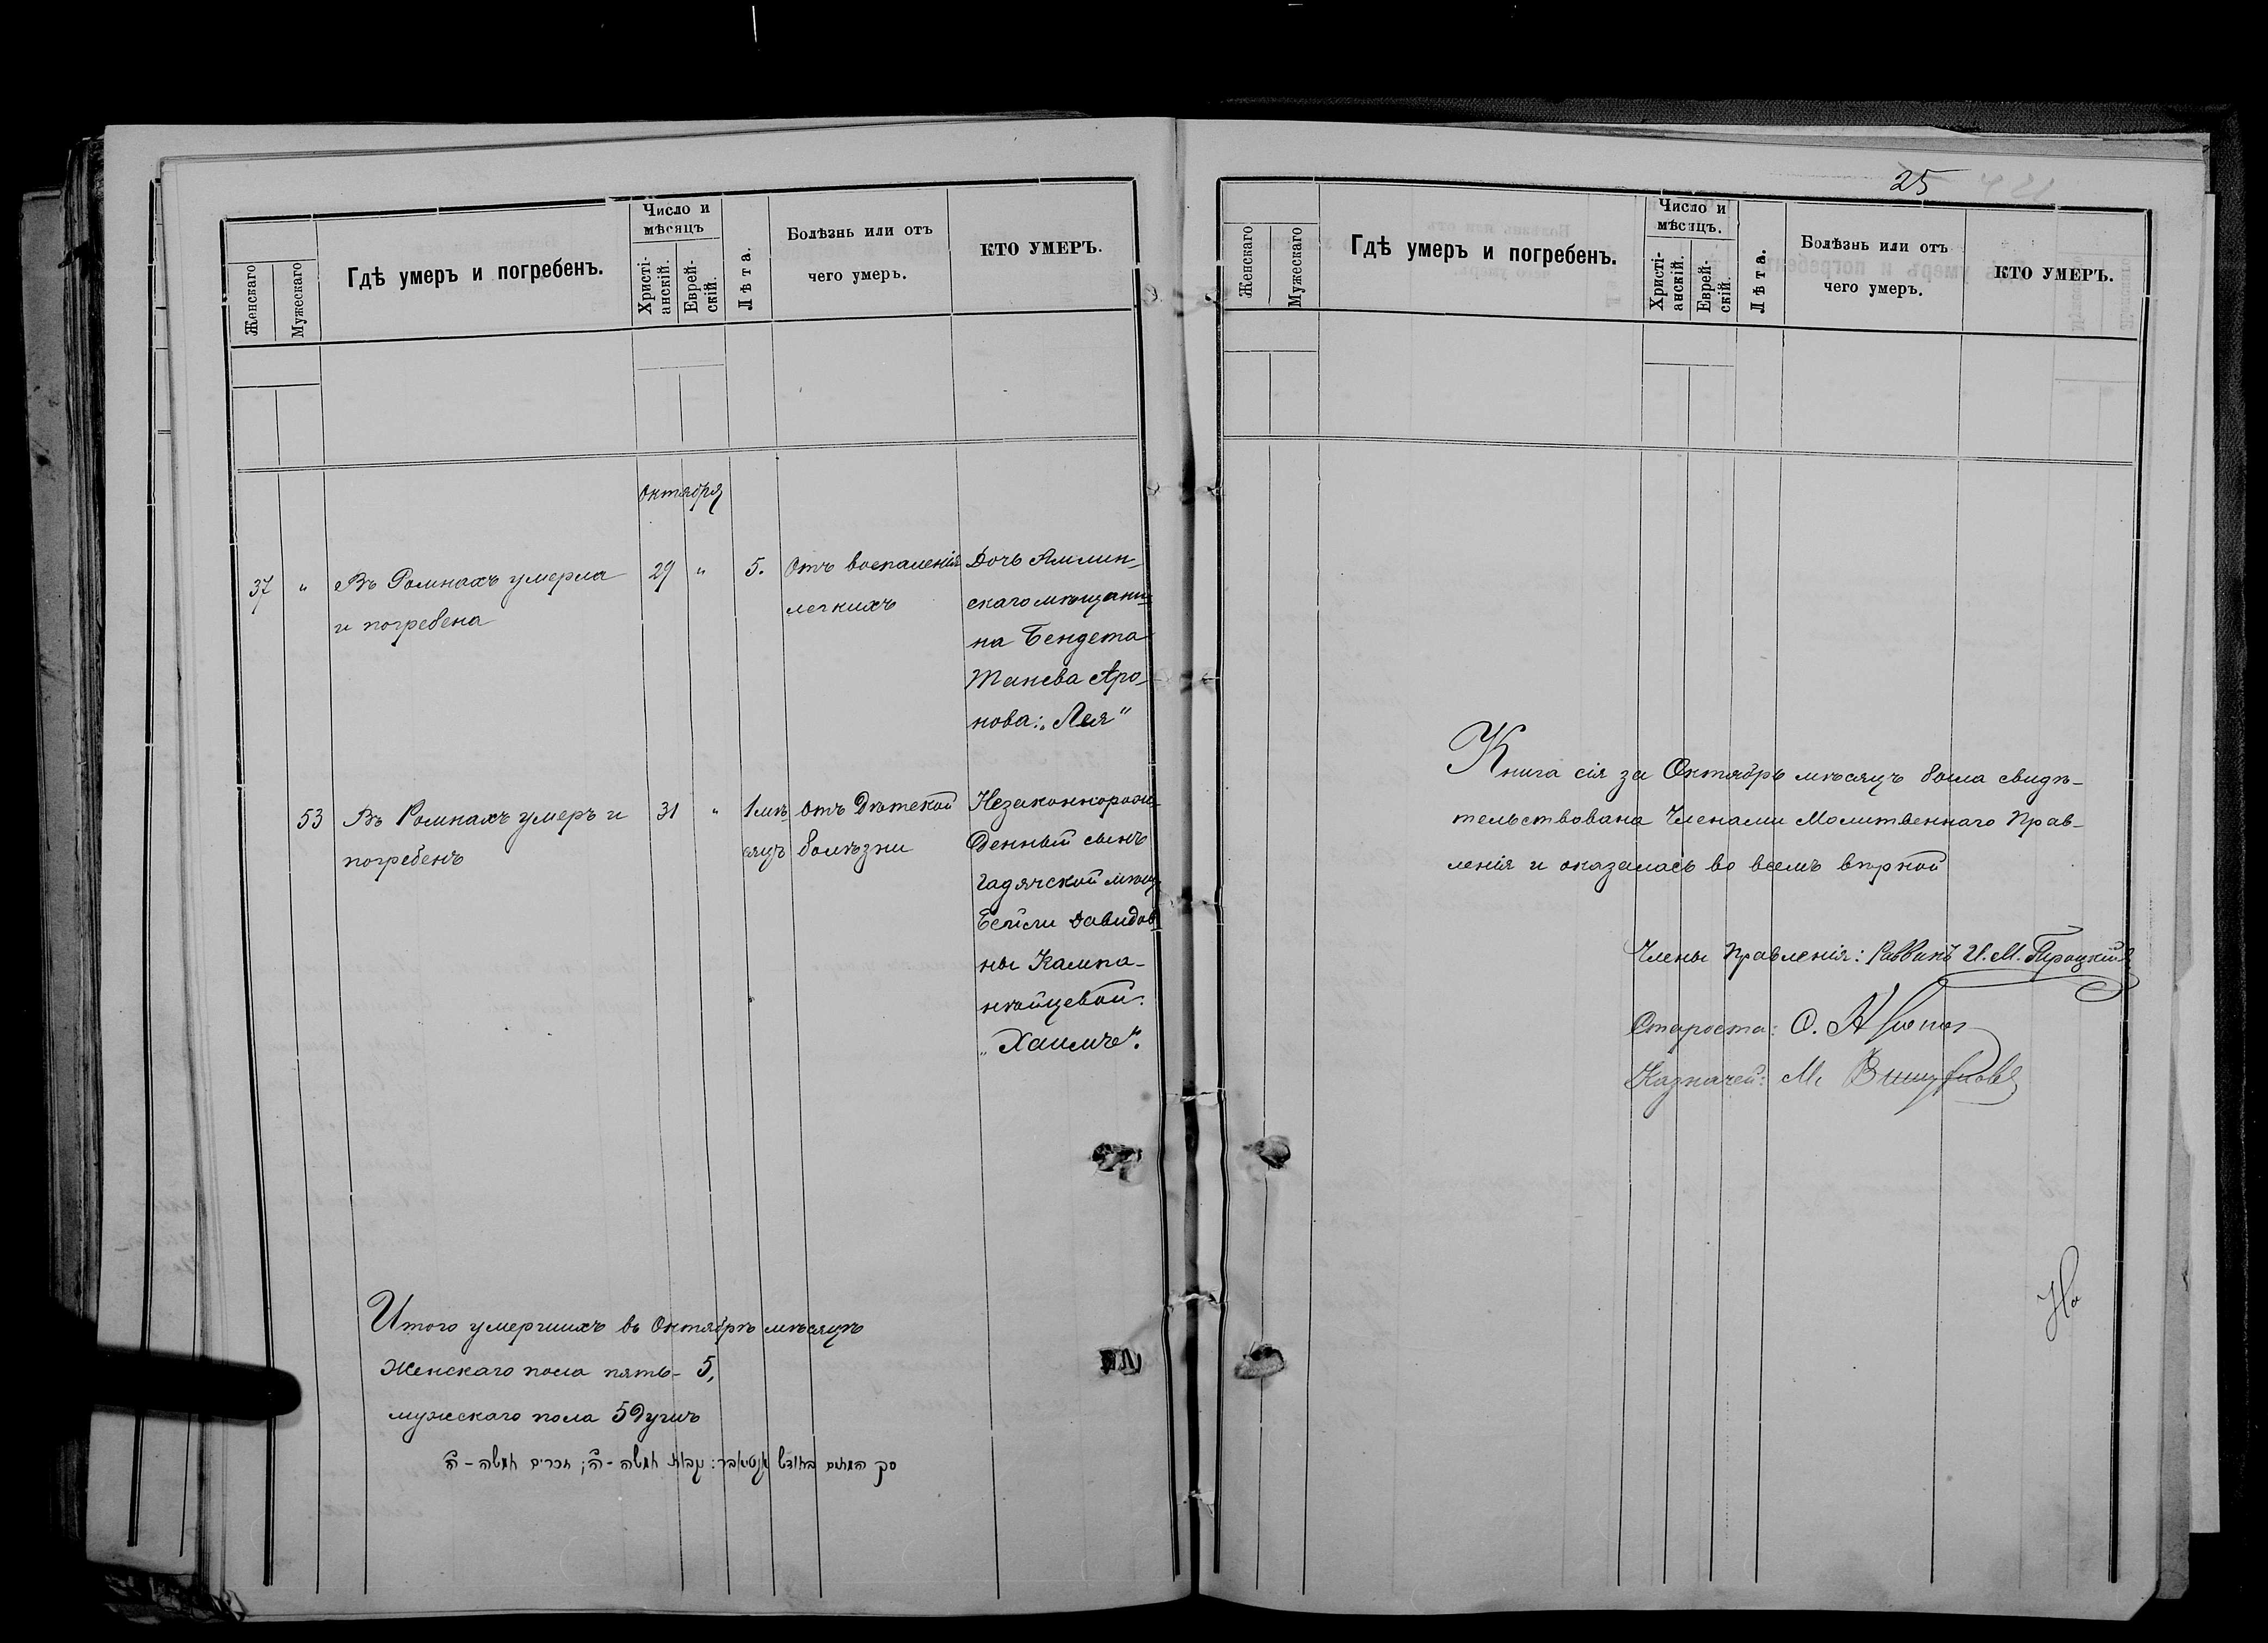 Женскаго
Мужескаго
Гдѣ умеръ и погребенъ.
Число и
мѣсяцъ
Христі-
анскій.
Еврей-
скій.
Лѣта.
Болѣзнь или отъ
чего умеръ.
КТО УМЕРЪ.
Октября
37 " Въ Ромнахъ умерла
и погребена
29 " 5.
Отъ воспаленія
легкихъ
Дочь
скаго мѣщани-
на Бендета
Аро-
нова: „Лея"
53 Въ Ромнахъ умеръ и
погребенъ
31 " 1 мѣ-
сяцъ
отъ Дѣтской
болѣзни
Незаконнорож-
денный сынъ
Гадячской мѣщ.
Бейли Давидов-
ны Кампа-
нѣйцевой:
„Хаимъ".
Итого умершихъ въ Октябрѣ мѣсяцѣ
Женскаго пола пять - 5,
мужскаго пола 5 душъ
סך המתים בחודש אקטיאבר: נקבות חמשה - ה'; זכרים חמשה - ה'
25
Женскаго
Мужескаго
Гдѣ умеръ и погребенъ.
Число и
мѣсяцъ.
Христі-
анскій.
Еврей-
скій.
Лѣта.
Болѣзнь или отъ
чего умеръ.
КТО УМЕРЪ.
Книга сія за Октябрь мѣсяцъ была свидѣ-
тельствована Членами Молитвеннаго Прав-
ленія и оказалась во всемъ вѣрной
Члены Правленія: Раввинъ И. М.
Староста: О.
Казначей: М.